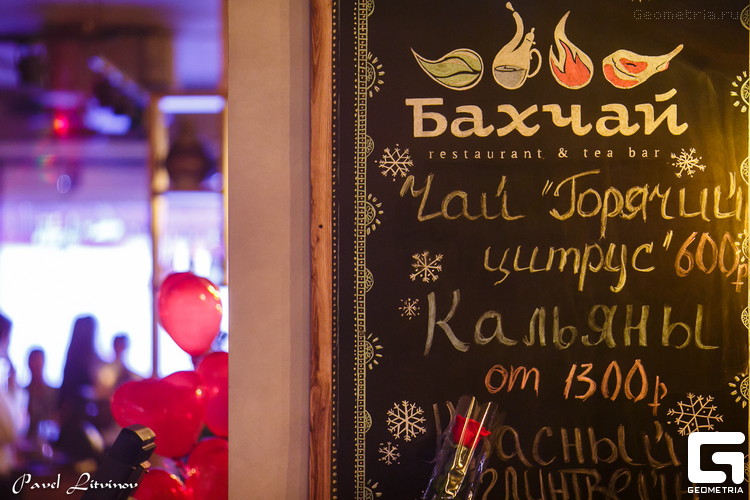 Geometria.ru
Бахчай
restaurant & tea bar
Чай "Горячий
цитрус" 600р
Кальяны
от 1300р
Красный
глинтвейн
Pavel Litvinov
GEOMETRIA